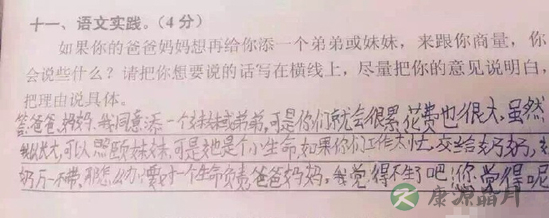 十一、语文实践。(4分)
如果你的爸爸妈妈想再给你添一个弟弟或妹妹，来跟你商量，你
会说些什么？请把你想要说的话写在横线上，尽量把你的意见说明白，
把理由说具体。
答:爸爸、妈妈、我同意添一个妹妹或弟弟,可是你们就会很累,花费也很大,虽然
我长大,可以照顾妹妹,可是她是个小生命,如果你们工作太忙,交给奶奶,奶
奶万一不带,那怎么办,要对一个生命负责,爸爸妈妈,我觉得不生了吧!你觉得呢
康源晶月